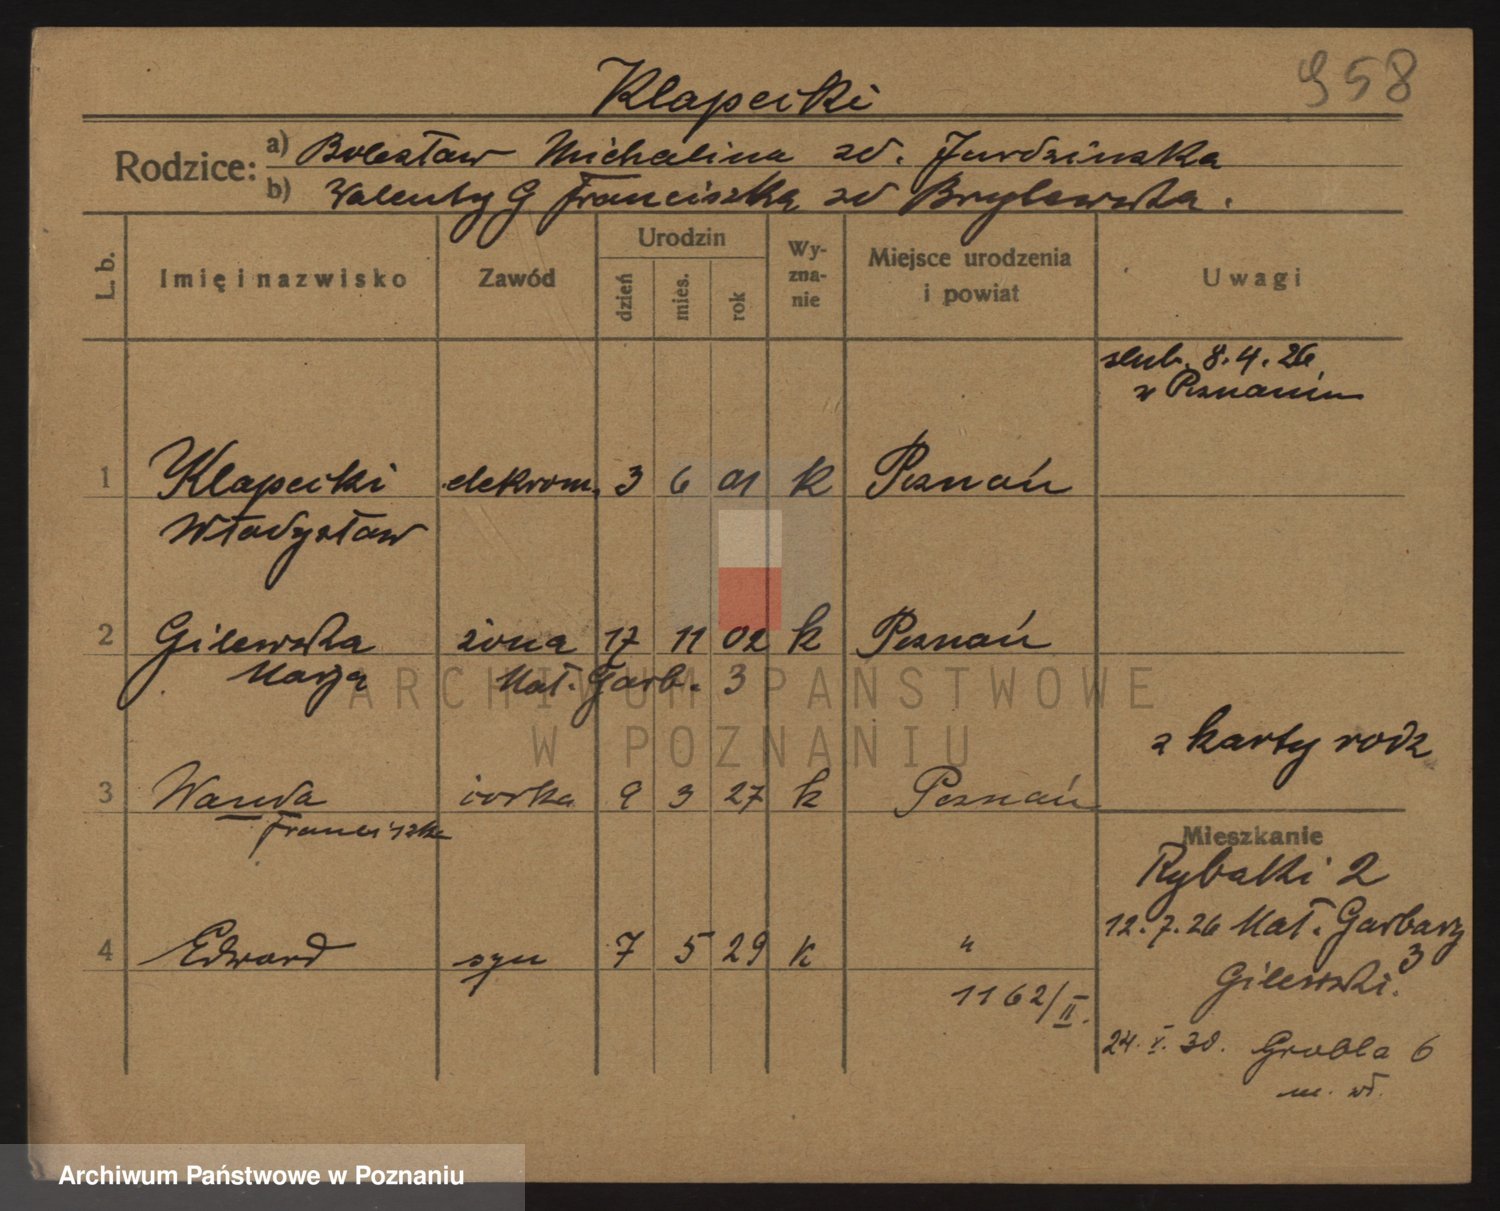 958
Klapecki
Rodzice:
a) Bolesław Michalina zd. Jurdzinska
b) Walenty G Franciszka zd Brylewska.
L. b.
Imię i nazwisko
Zawód
Urodzin
dzień
mies.
rok
Wy-
zna-
nie
Miejsce urodzenia
i powiat
Uwagi
slub. 8.4.26
w Poznaniu
1 Klapecki elekrom. 3 6 01 k Poznań
Władysław
2 Gilewska żona 17 11 02 k Poznań
Marja Mał. Garb. 3
ARCHIWUM PAŃSTWOWE
W POZNANIU
z karty rodz
3 Wanda córka 9 3 27 k Poznań
Franciszka
Mieszkanie
Rybaki 2
12.7.26 Mał. Garbary
3
4 Edward syn 7 5 29 k "
Gilewski.
1162/II.
24. V. 30. Grobla 6
m. wł.
Archiwum Państwowe w Poznaniu